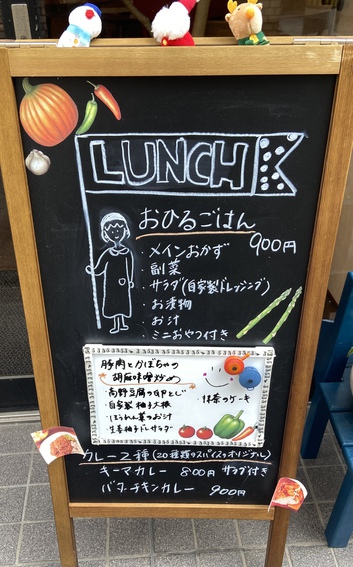 LUNCH
おひるごはん
900円
・メインおかず
・副菜
・サラダ(自家製ドレッシング)
・お漬物
・お汁
・ミニおやつ付き
豚肉とかぼちゃの
胡麻味噌炒め
・高野豆腐の卵とじ
・自家製柚子大根
・ほうれん草のお汁
・生姜柚子ドレサラダ
・抹茶のケーキ
カレー2種(20種類のスパイス オリジナル)
キーマカレー 800円 サラダ付き
バターチキンカレー 900円